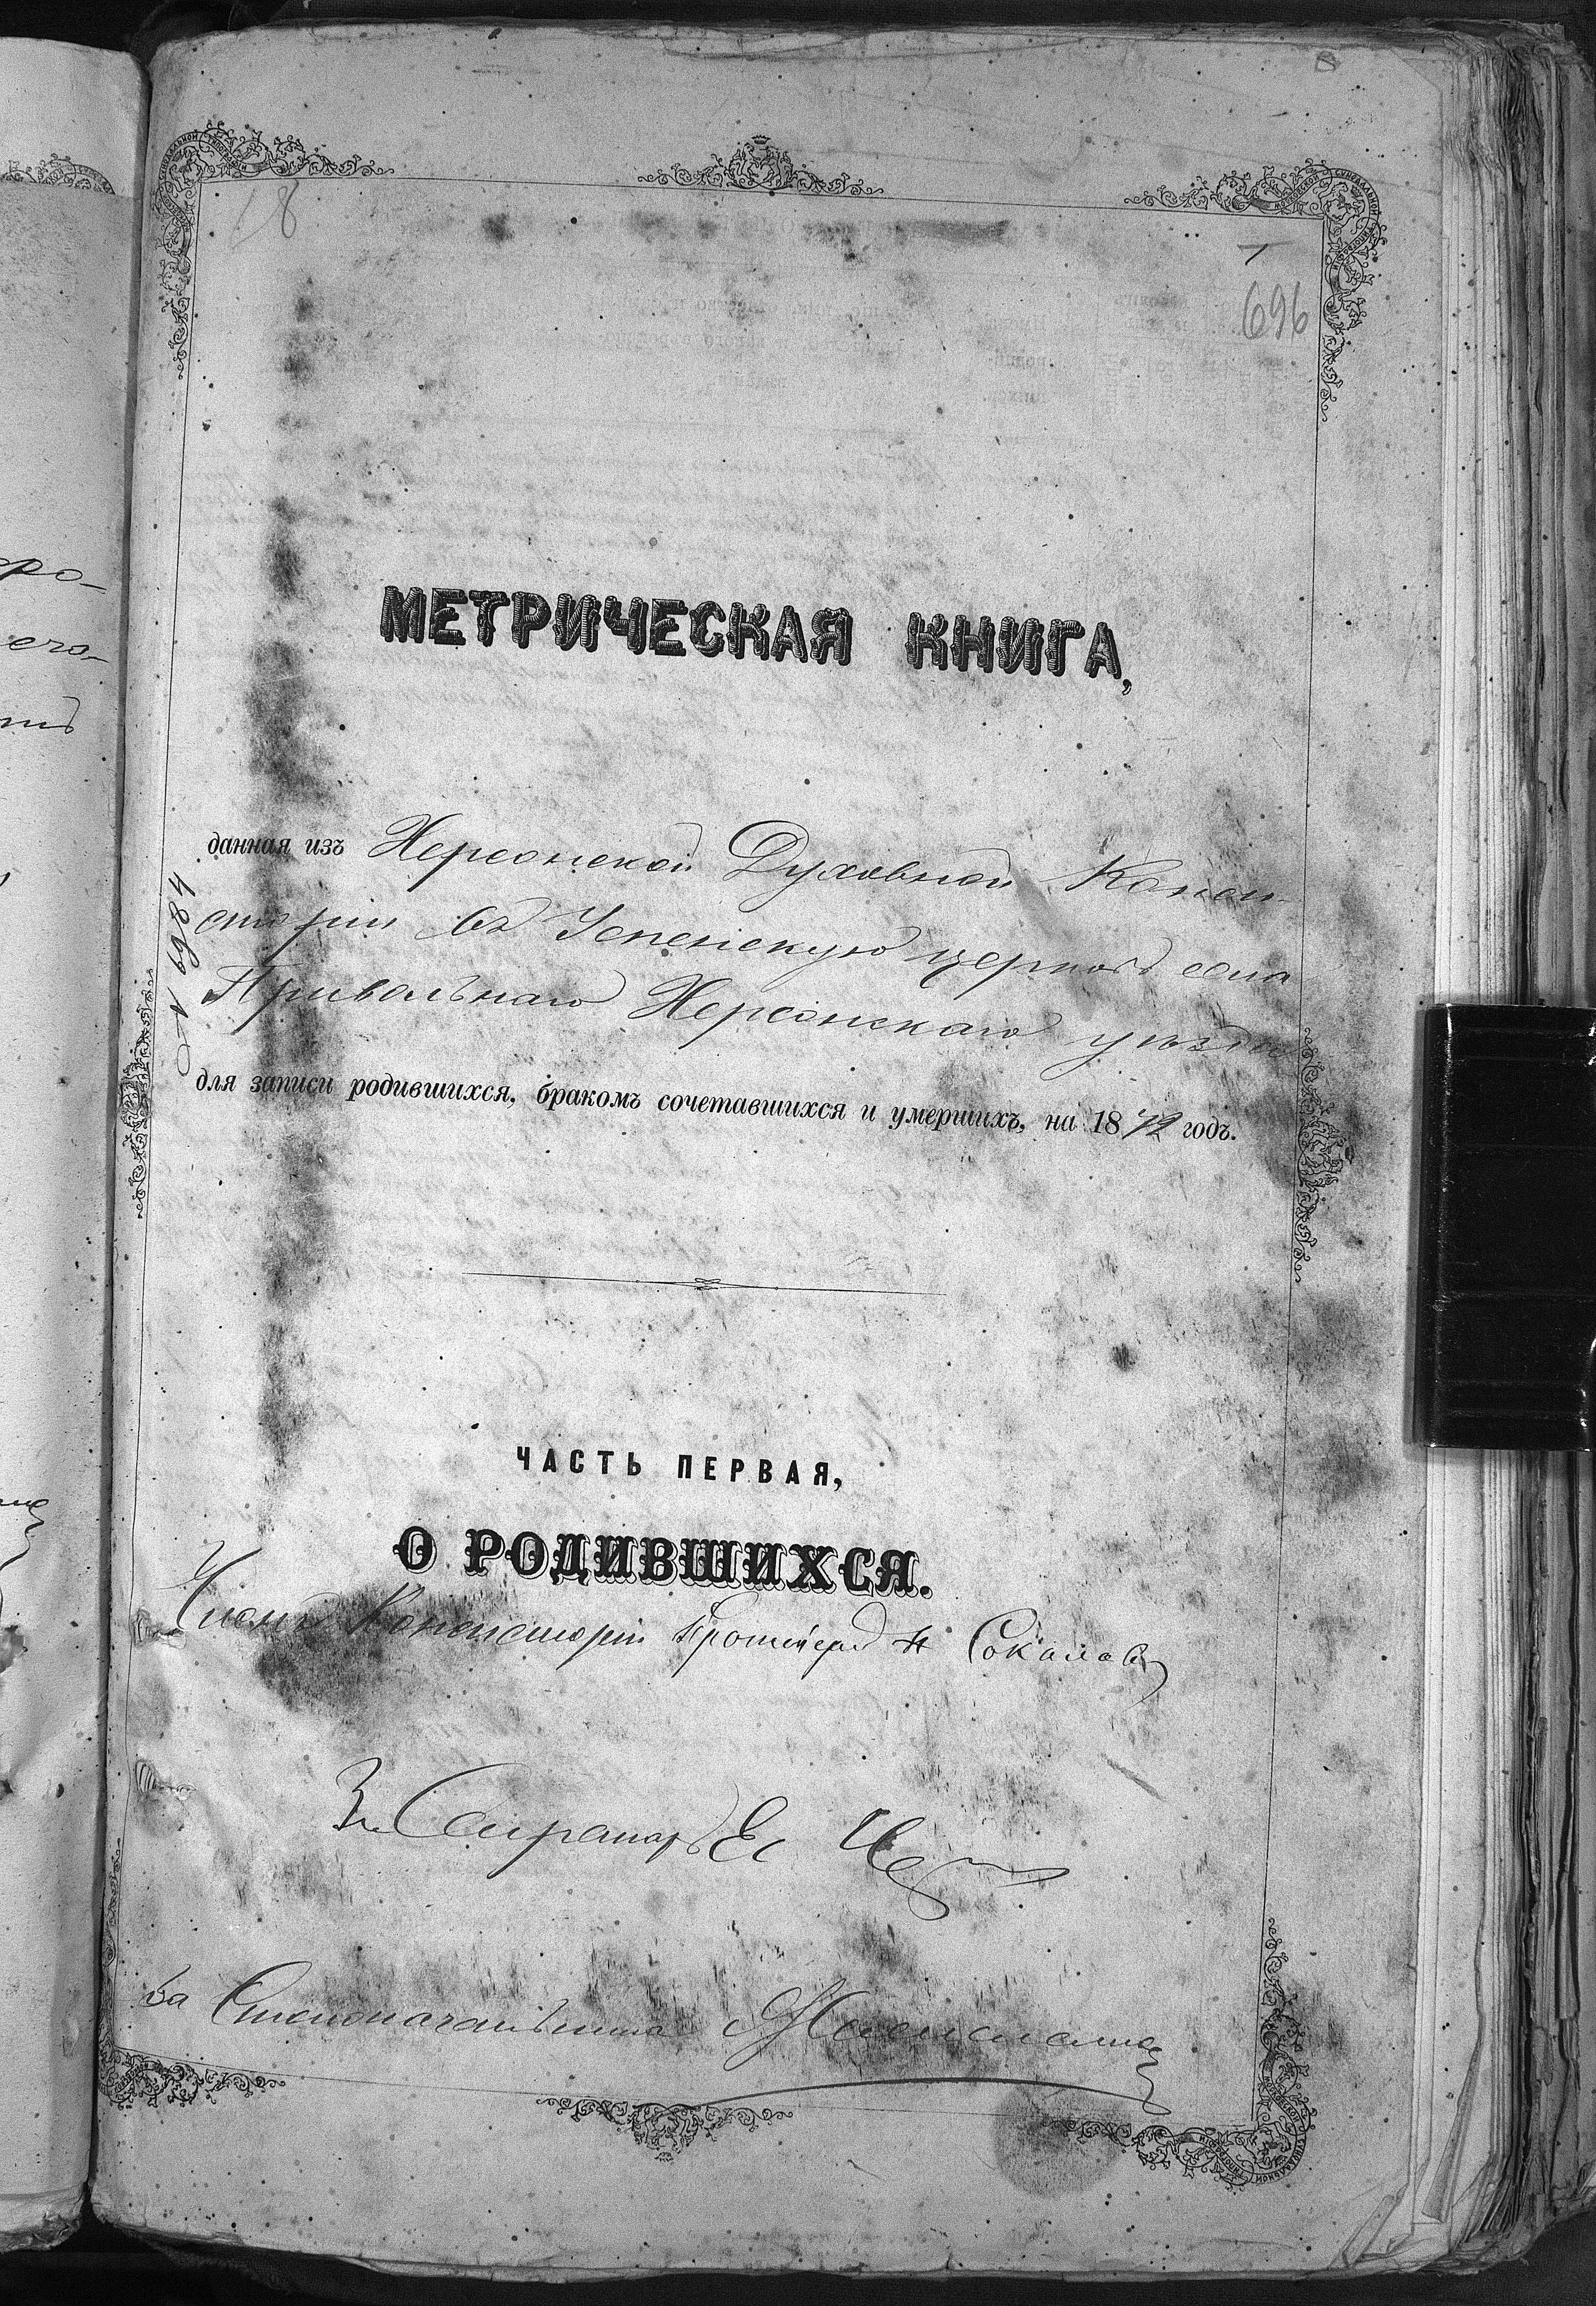 18
696
МЕТРИЧЕСКАЯ КНИГА,
данная изъ Херсонской Духовной Консис-
торіи въ Успенскую церковь села
Привольнаго Херсонскаго уѣзда
для записи родившихся, бракомъ сочетавшихся и умершихъ, на 1872 годъ.
6984
ЧАСТЬ ПЕРВАЯ,
О РОДИВШИХСЯ.
Членъ Консисторіи Протоіерей Н Соколовъ
За Секретаря
За Столоначальника